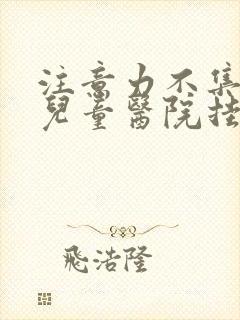 注意力不集
兒童醫院挂
飛浩隆